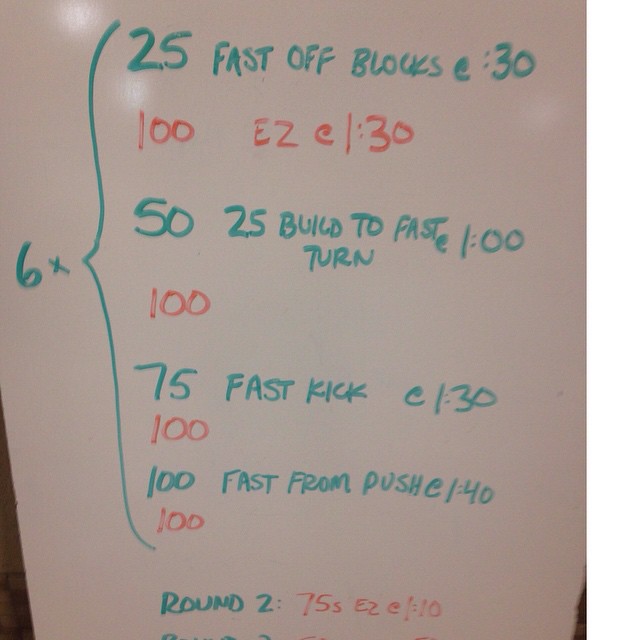 25 FAST OFF BLOCKS @ :30
100 EZ @ 1:30
50 25 BUILD TO FAST @ 1:00
TURN
6x
100
75 FAST KICK @ 1:30
100
100 FAST FROM PUSH @ 1:40
100
ROUND 2: 75s EZ @ 1:10